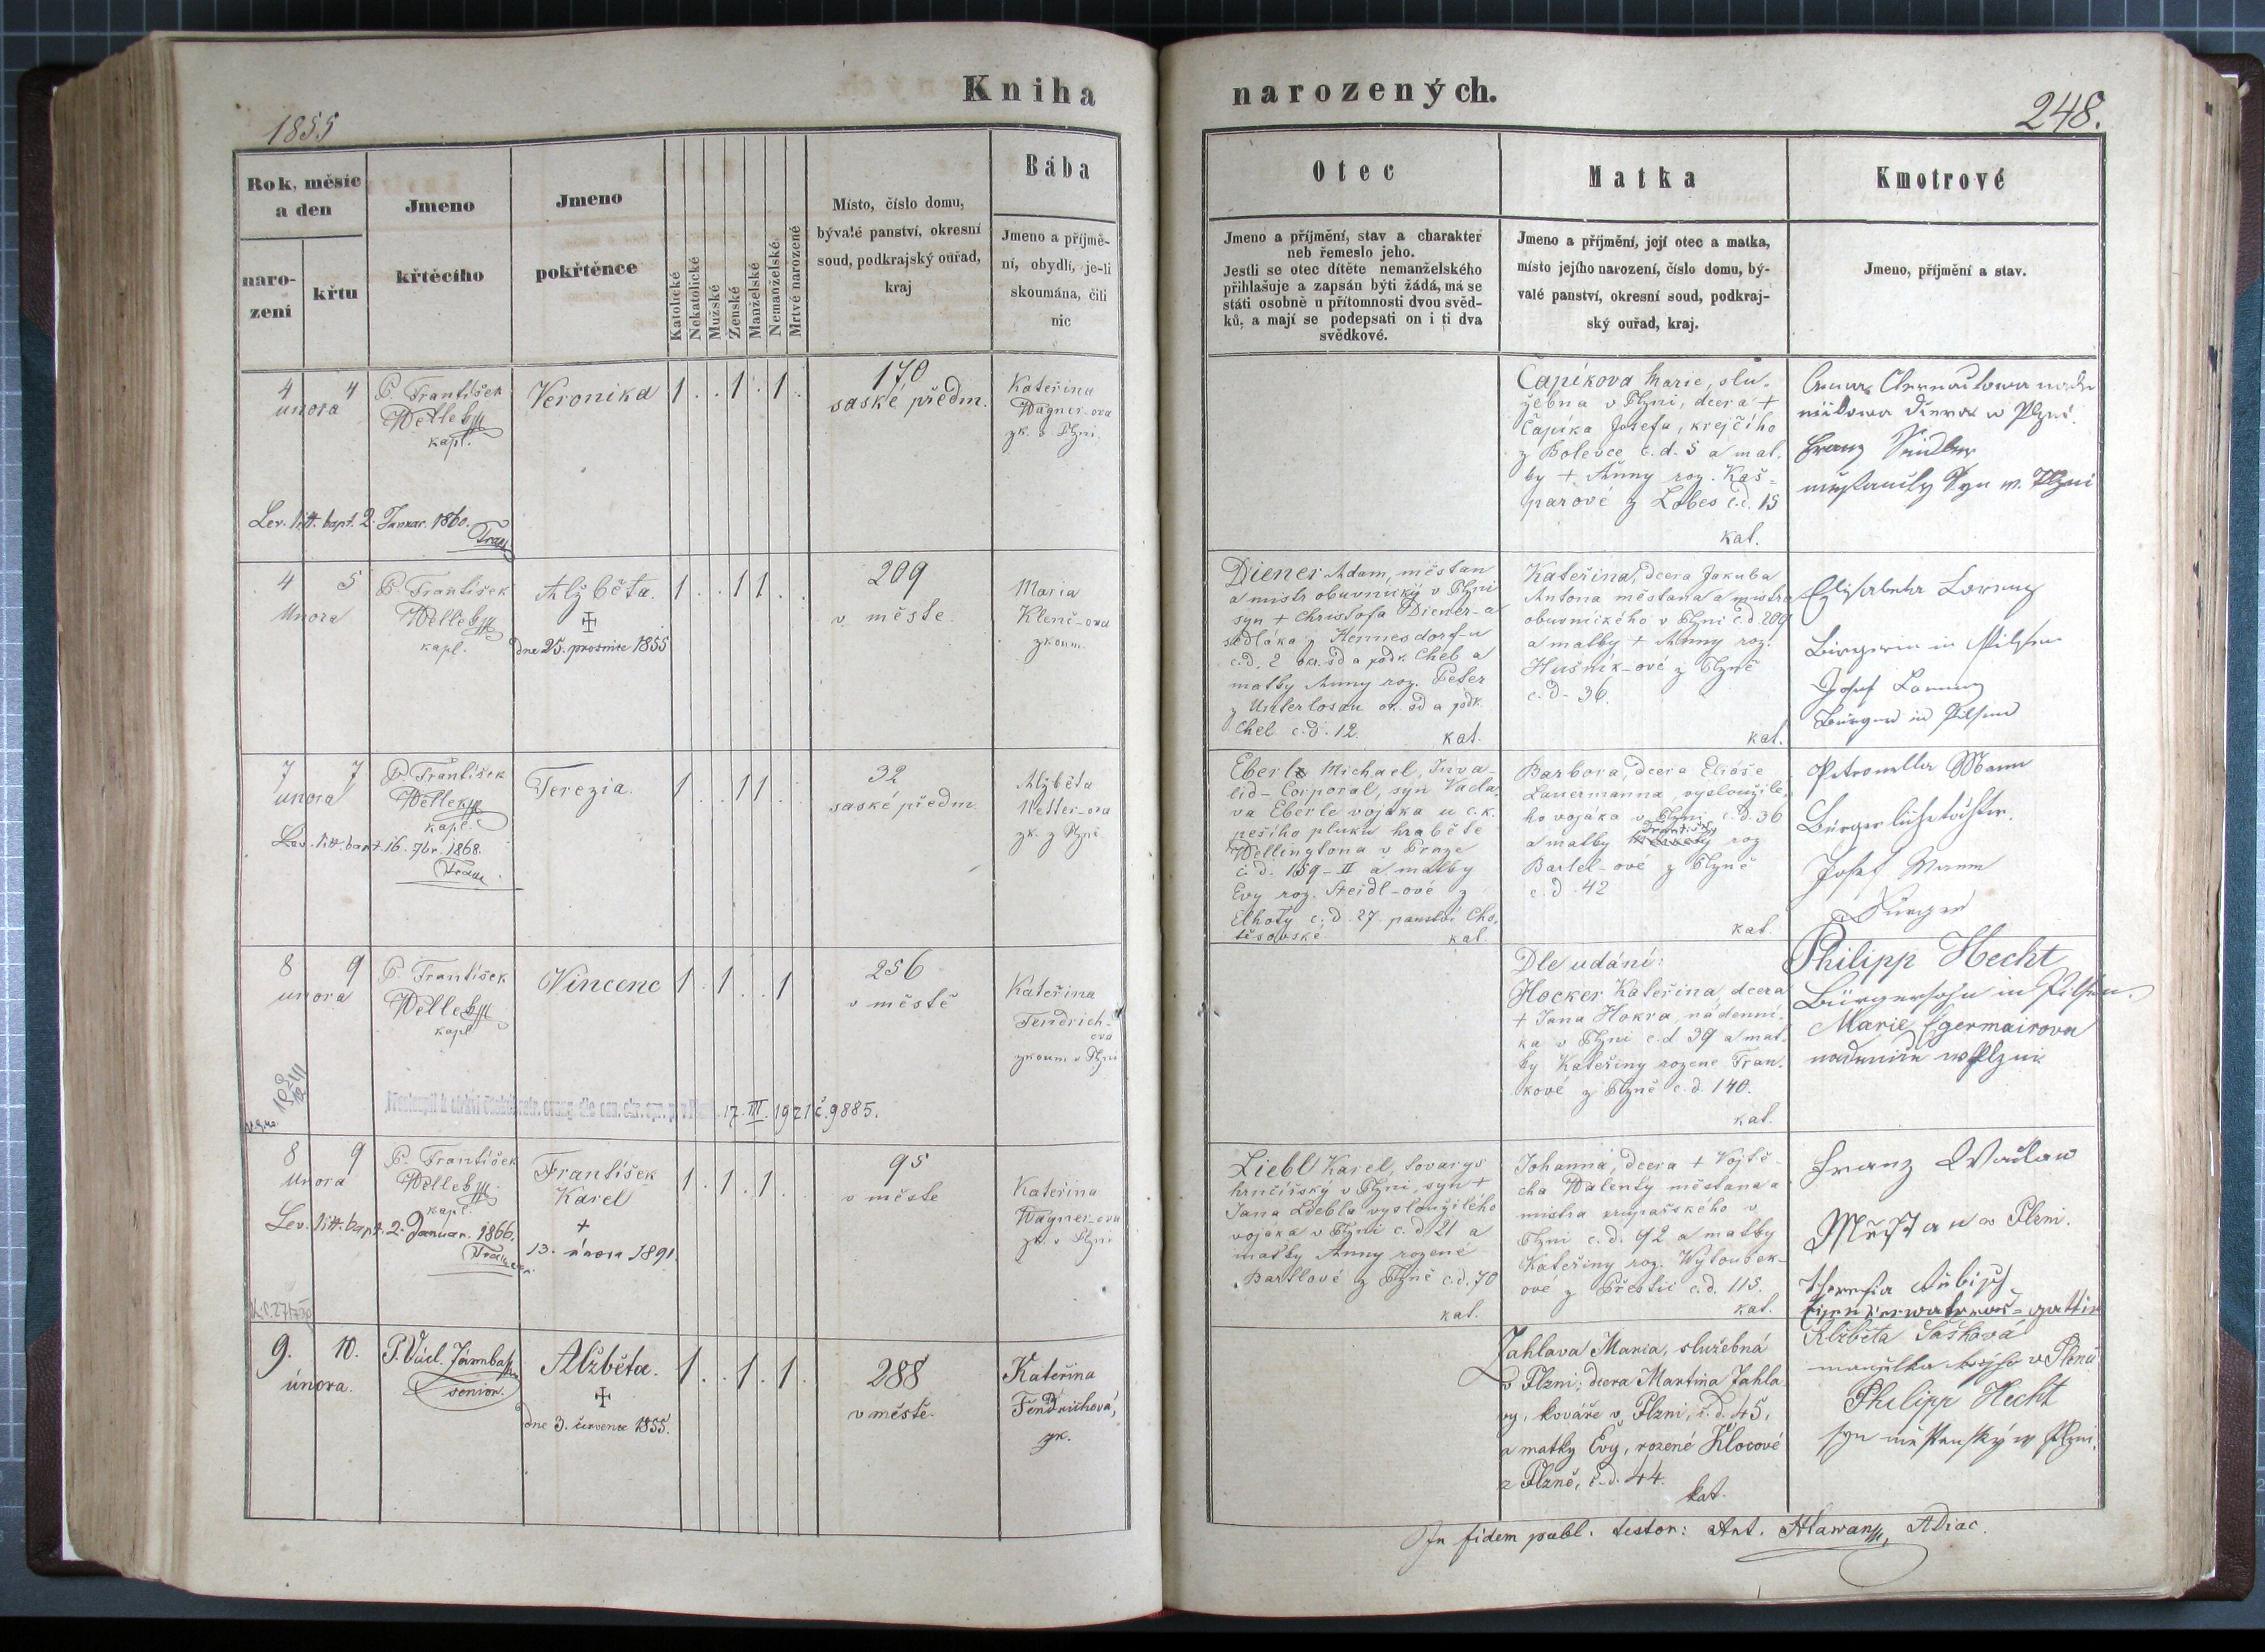 Kniha
1855
Rok, měsíc
a den
naro-
zení
křtu
Jmeno
křtěcího
Jmeno
pokřtěnce
Katolické
Nekatolické
Mužské
Ženské
Manželské
Nemanželské
Mrtvé narozené
Místo, číslo domu,
bývalé panství, okresní
soud, podkrajský ouřad,
kraj
Bába
Jmeno a příjmě-
ní, obydlí, je-li
skoumána, čili
nic
4 4
unora
P. František
Wellek
kapl.
Veronika
1 . . 1 . 1 .
170
saské předm.
Kateřina
Wagner-ova
zk. v Plzni
Lev. litt. bapt. 2. Januar. 1860.
4 5
Unora
P. František
Wellek
kapl.
Alžběta.
dne 25. prosince 1855
1 . . 1 1 . .
209
v měste.
Maria
Klenč-ova
zkoum.
7 7
unora
P. František
Wellek
kapl.
Terezia.
1 . . 1 1 . .
32
saské předm.
Alžběta
Wetter-ova
zk. z Plzně
Lev. litt. bapt. 16. 7br. 1868.
8 9
unora
P. František
Wellek
kapl.
Vincenc
1 . 1 . . 1
256
v městě
Kateřina
Fendrich-
ova
zkoum v Plzni
17. III. 1921 č. 9885.
8 9
Unora
P. František
Wellek
kapl.
František
Karel
13. února 1891.
1 . 1 . 1 .
95
v městě
Kateřina
Wagner-ova
zk. v Plzni
Lev. litt. bapt. 2. Januar. 1866.
9. 10.
února.
P. Václ.
senior.
Alžběta.
dne 3. července 1855.
1 . . 1 . 1 .
288
v městě.
Kateřina
Fendrichová,
zk.
narozených.
248.
Otec
Jmeno a příjmění, stav a charakter
neb řemeslo jeho.
Jestli se otec dítěte nemanželského
přihlašuje a zapsán býti žádá, má se
státi osobně u přítomnosti dvou svěd-
ků, a mají se podepsati on i ti dva
svědkové.
Matka
Jmeno a příjmění, její otec a matka,
místo jejího narození, číslo domu, bý-
valé panství, okresní soud, podkraj-
ský ouřad, kraj.
Kmotrové
Jmeno, příjmění a stav.
Čapíkova Marie, slu-
žebna v Plzni, dcera +
Čapíka Josefa, krejčího
z Bolevce č. d. 5 a mat.
ky + Anny roz. Kaš-
parové z Lobes č.d. 15
kat.
w Plzni.
Franz
Syn w. Plzni
Diener Adam, měštan
a mistr obuvnický v Plzni
syn + Christofa Diener-a
sedláka z Hennesdorf-u
c.d. 2 ok. sd a podk. Cheb a
matky Anny roz. Peter
z Unterlosau ok. sd a podk.
Cheb c.d. 12. kat.
Kateřina, dcera Jakuba
Antona měštana a mistra
obuvnického v Plzni c.d. 209
a matky + Anny roz.
Hušnik-ové z Plzně
c.d. 36.
kat.
Elisabetha Lorenz
Bürgerin in Pilsen
Josef Lorenz
Bürger in Pilsen
Eberle Michael, Inva-
lid-Corporal, syn Vacla-
va Eberle vojaka u c.k.
pešího pluku hraběte
Wellingtona v Praze
č. d. 159-II a matky
Evy roz. Steidl-ové z
Elhoty c. d. 27 panství Cho-
těsovské kat.
Barbora, dcera Eliáše
Lauermanna, vysloužile-
ho vojáka v Plzni c.d. 36
a matky Františky roz
Bartel-ové z Plzně
c.d. 42
kat.
Petronella Mann
Bürgerlichstochter.
Josef Mann
Bürger
Dle udání:
Hocker Kateřina, dcera
+ Jana Hokra, nádenni-
ka v Plzni c.d 39 a mat-
ky Kateřiny rozene Fran-
kové z Plzně c.d. 140.
kat.
Philipp Hecht
Bürgersohn in Pilsen.
Marie Egermairova
w Plzni
Liebl Karel, tovarys
hrnčířský v Plzni, syn +
Jana Liebla vysloužilého
vojaka v Plzni c. d. 21 a
matky Anny rozené
Bartlové z Plzně c.d. 70
kat.
Johanna, dcera + Vojtě-
cha Walenty měštana a
mistra krupařského v
Plzni c.d. 92 a matky
Kateřiny roz. Wytousek-
ové z Přestic c.d. 115.
kat.
Franz Wačlaw
Měštan w Plzni.
Theresia
gattin
Zahlava Maria, služebná
v Plzni; dcera Martina Zahla-
vy, kováře v Plzni, č. d. 45,
a matky Evy, rozené Klocové
z Plzně, č. d. 44.
kat.
Alžběta Šašková
manželka w Plzni
Philipp Hecht
syn měštanský w Plzni.
In fidem publ. testor: Ant. Hlawan, ADiac.